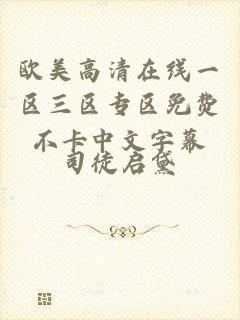 欧美高清在线一
区三区专区免费
不卡中文字幕
司徒启黛